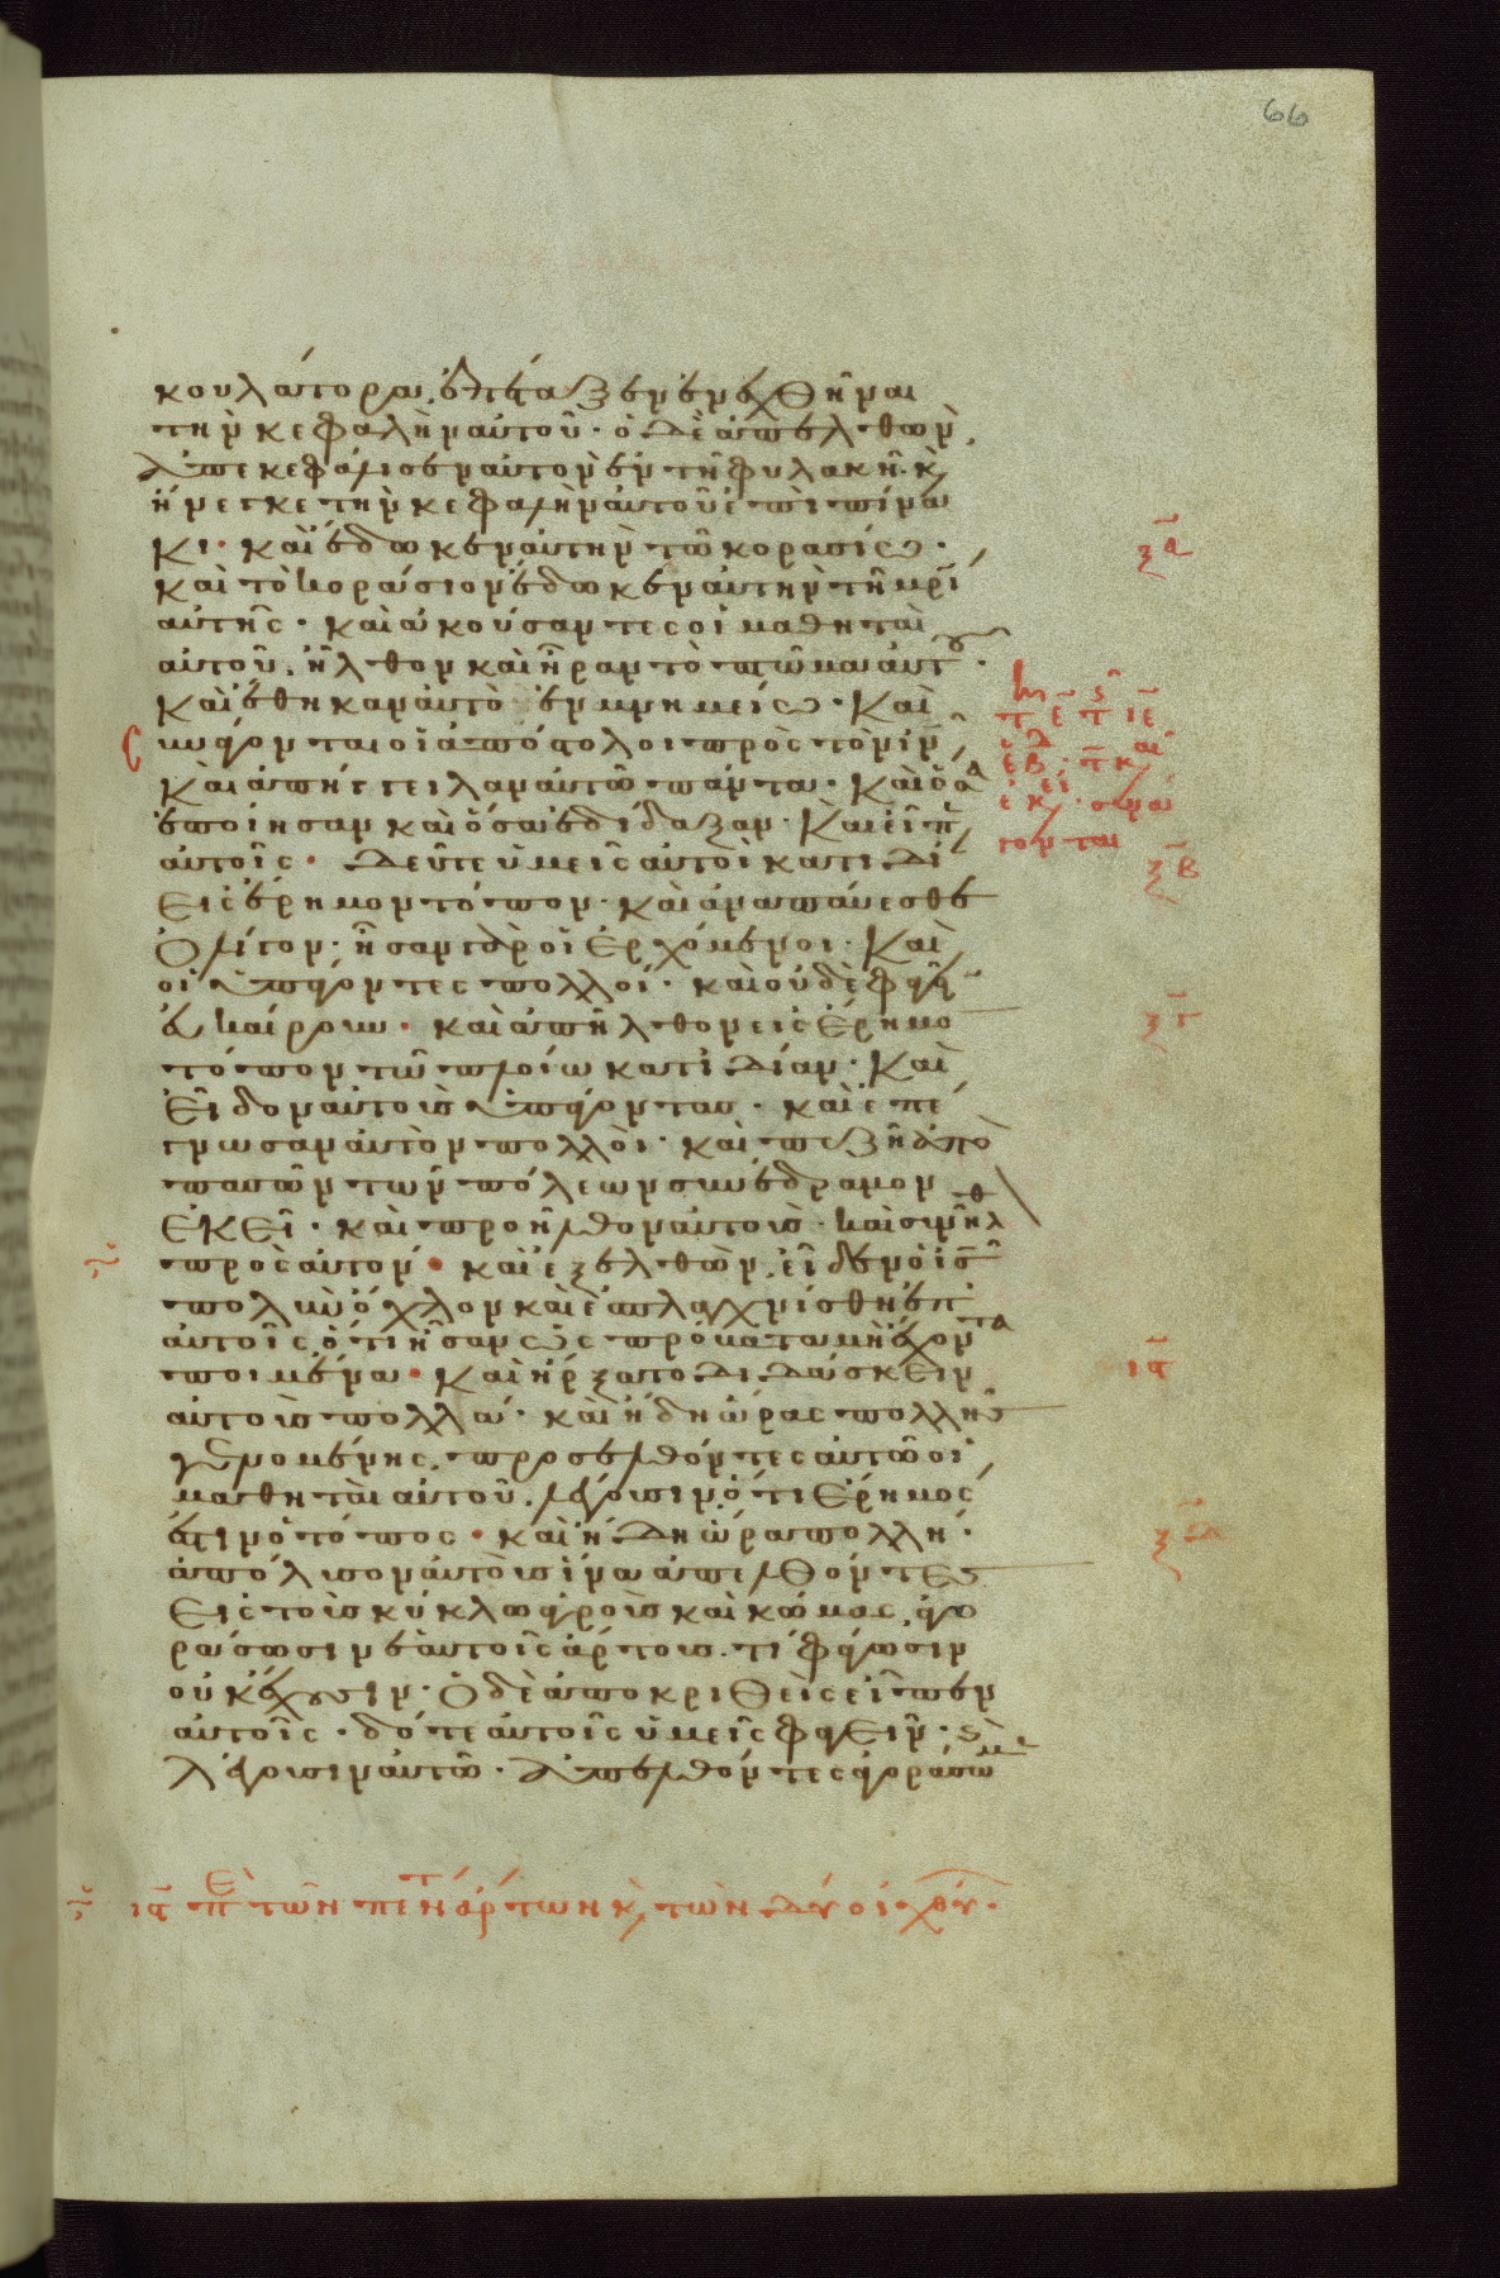 66
κουλάτορα, ἐπέταξεν ἐνεχθῆναι
τὴν κεφαλὴν αὐτοῦ· ὁ δὲ ἀπελθὼν,
ἀπεκεφάλισεν αὐτὸν ἐν τῆ φυλακῆ· κ(αὶ)
ἤνεγκε τὴν κεφαλὴν αὐτοῦ ἐπὶ πίνα
κι· καὶ ἔδωκεν αὐτὴν τῶ κορασίω·
ξα
καὶ τὸ κοράσιον ἔδωκεν αὐτὴν τῆ μρὶ
αὐτῆς· καὶ ἀκούσαντες οἱ μαθηταὶ
αὐτοῦ, ἦλθον καὶ ἦραν τὸ πτῶμα αὐτοῦ·
καὶ ἔθηκαν αὐτὸ ἐν μνημείω· Καὶ
συνάγονται οἱ ἀπόστολοι πρὸς τὸν ιν
καὶ ἀπήγγειλαν αὐτῶ πάντα· καὶ ὅσα
ἐποίησαν καὶ ὅσα ἐδίδαξαν· Καὶ εἶπ
αὐτοῖς· δεῦτε ὑμεῖς αὐτοὶ κατιδί
ξβ
εἰς ἔρημον τόπον· καὶ ἀναπαύεσθε
ὀλίγον· ἦσαν γὰρ οἱ ἐρχόμενοι· Καὶ
οἱ ὑπάγοντες πολλοί· καὶ οὐδὲ φαγεῖ
εὐκαίρουν· καὶ ἀπῆλθον εἰς ἔρημο
ξγ
τόπον τῶ πλοίω κατιδίαν· Καὶ
εἶδον αὐτοὺς ὑπάγοντας· καὶ ἐπέ
γνωσαν αὐτὸν πολλοὶ· καὶ πεζῆ ἀπὸ
πασῶν τῶν πόλεων συνέδραμον
ἐκεῖ· καὶ προῆλθον αὐτοὺς· καὶ συνῆλθ
πρὸς αὐτόν· καὶ ἐξελθὼν, εἶδεν ὁ ις
πολὺν ὄχλον καὶ ἐσπλαγχνίσθη ἐπ
αὐτοῖς, ὅτι ἦσαν ὡς πρόβατα μὴ ἔχοντα
ποιμένα· Καὶ ἤρξατο διδάσκειν
ια
αὐτοὺς πολλά· καὶ ἤδη ὥρας πολλῆς
γενομένης, προσελθόντες αὐτῶ οἱ
μαθηταὶ αὐτοῦ, λέγουσιν ὅτι ἔρημός
ἐστιν ὁ τόπος· καὶ ἤδη ὥρα πολλή·
ξδ
ἀπόλυσον αὐτοὺς ἵνα ἀπελθόντες
εἰς τοὺς κύκλω ἀγροὺς καὶ κώμας, ἀγο
ράσωσιν ἑαυτοῖς ἄρτους· τί φάγωσιν
οὐκ ἔχουσιν· Ὁ δὲ ἀποκριθεὶς εἶπεν
αὐτοῖς· δότε αὐτοῖς ὑμεῖς φαγεῖν· κ(αὶ)
λέγουσιν αὐτῶ· ἀπελθόντες ἀγοράσωμε
ια πε τῶν πέντ ἄρτων κ(αὶ) τῶν δύο ἰχθύ·